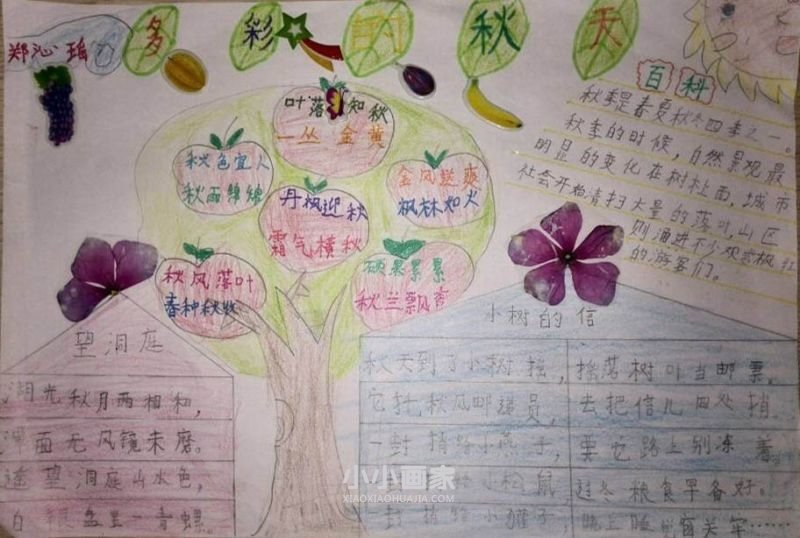 郑沁瑶
多彩的秋天
百科
秋季是春夏秋冬四季之一。
秋季的时候，自然景观最
明显的变化在树林里面，城市
社会开始清扫大量的落叶，山区
则涌进不少观赏枫红
的游客们。
叶落知秋
一丛金黄
秋色宜人
秋雨绵绵
金风送爽
枫林如火
丹枫迎秋
霜气横秋
秋风落叶
春种秋收
硕果累累
秋兰飘香
望洞庭
湖光秋月两相和，
潭面无风镜未磨。
遥望洞庭山水色，
白银盘里 青螺。
小树的信
秋天到了小树摇，
它托秋风邮递员，
一封捎给小燕子，
给小松鼠
一封捎给小獾子，
摇落树叶当邮票。
去把信儿四处捎。
要它路上别冻着。
过冬粮食早备好。
晚上睡觉窗关牢……
小小画家
XIAOXIAOHUAJIA.COM